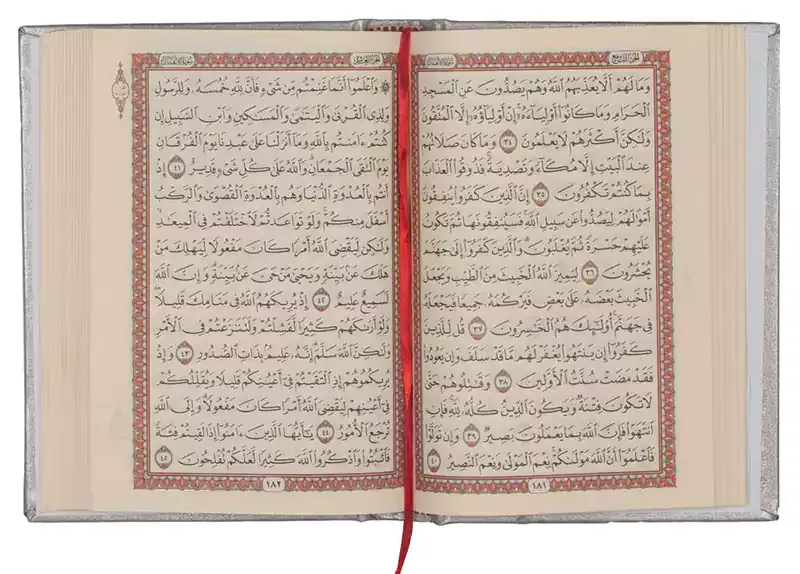 الجزء التاسع
سورة الأنفال
وَمَا لَهُمْ أَلَّا يُعَذِّبَهُمُ اللَّهُ وَهُمْ يَصُدُّونَ عَنِ الْمَسْجِدِ
الْحَرَامِ وَمَا كَانُوا أَوْلِيَاءَهُ إِنْ أَوْلِيَاؤُهُ إِلَّا الْمُتَّقُونَ
وَلَٰكِنَّ أَكْثَرَهُمْ لَا يَعْلَمُونَ ٣٤ وَمَا كَانَ صَلَاتُهُمْ
عِندَ الْبَيْتِ إِلَّا مُكَاءً وَتَصْدِيَةً فَذُوقُوا الْعَذَابَ
بِمَا كُنتُمْ تَكْفُرُونَ ٣٥ إِنَّ الَّذِينَ كَفَرُوا يُنفِقُونَ
أَمْوَالَهُمْ لِيَصُدُّوا عَن سَبِيلِ اللَّهِ فَسَيُنفِقُونَهَا ثُمَّ تَكُونُ
عَلَيْهِمْ حَسْرَةً ثُمَّ يُغْلَبُونَ وَالَّذِينَ كَفَرُوا إِلَىٰ جَهَنَّمَ
يُحْشَرُونَ ٣٦ لِيَمِيزَ اللَّهُ الْخَبِيثَ مِنَ الطَّيِّبِ وَيَجْعَلَ
الْخَبِيثَ بَعْضَهُ عَلَىٰ بَعْضٍ فَيَرْكُمَهُ جَمِيعًا فَيَجْعَلَهُ
فِي جَهَنَّمَ أُولَٰئِكَ هُمُ الْخَاسِرُونَ ٣٧ قُل لِّلَّذِينَ
كَفَرُوا إِن يَنتَهُوا يُغْفَرْ لَهُم مَّا قَدْ سَلَفَ وَإِن يَعُودُوا
فَقَدْ مَضَتْ سُنَّتُ الْأَوَّلِينَ ٣٨ وَقَاتِلُوهُمْ حَتَّىٰ
لَا تَكُونَ فِتْنَةٌ وَيَكُونَ الدِّينُ كُلُّهُ لِلَّهِ فَإِنِ
انتَهَوْا فَإِنَّ اللَّهَ بِمَا يَعْمَلُونَ بَصِيرٌ ٣٩ وَإِن تَوَلَّوْا
فَاعْلَمُوا أَنَّ اللَّهَ مَوْلَاكُمْ نِعْمَ الْمَوْلَىٰ وَنِعْمَ النَّصِيرُ ٤٠
١٨١
الجزء العاشر
سورة الأنفال
۞ وَاعْلَمُوا أَنَّمَا غَنِمْتُم مِّن شَيْءٍ فَأَنَّ لِلَّهِ خُمُسَهُ وَلِلرَّسُولِ
وَلِذِي الْقُرْبَىٰ وَالْيَتَامَىٰ وَالْمَسَاكِينِ وَابْنِ السَّبِيلِ إِن
كُنتُمْ آمَنتُم بِاللَّهِ وَمَا أَنزَلْنَا عَلَىٰ عَبْدِنَا يَوْمَ الْفُرْقَانِ
يَوْمَ الْتَقَى الْجَمْعَانِ وَاللَّهُ عَلَىٰ كُلِّ شَيْءٍ قَدِيرٌ ٤١ إِذْ
أَنتُم بِالْعُدْوَةِ الدُّنْيَا وَهُم بِالْعُدْوَةِ الْقُصْوَىٰ وَالرَّكْبُ
أَسْفَلَ مِنكُمْ وَلَوْ تَوَاعَدتُّمْ لَاخْتَلَفْتُمْ فِي الْمِيعَادِ
وَلَٰكِن لِّيَقْضِيَ اللَّهُ أَمْرًا كَانَ مَفْعُولًا لِّيَهْلِكَ مَنْ
هَلَكَ عَن بَيِّنَةٍ وَيَحْيَىٰ مَنْ حَيَّ عَن بَيِّنَةٍ وَإِنَّ اللَّهَ
لَسَمِيعٌ عَلِيمٌ ٤٢ إِذْ يُرِيكَهُمُ اللَّهُ فِي مَنَامِكَ قَلِيلًا
وَلَوْ أَرَاكَهُمْ كَثِيرًا لَّفَشِلْتُمْ وَلَتَنَازَعْتُمْ فِي الْأَمْرِ
وَلَٰكِنَّ اللَّهَ سَلَّمَ إِنَّهُ عَلِيمٌ بِذَاتِ الصُّدُورِ ٤٣ وَإِذْ
يُرِيكُمُوهُمْ إِذِ الْتَقَيْتُمْ فِي أَعْيُنِكُمْ قَلِيلًا وَيُقَلِّلُكُمْ
فِي أَعْيُنِهِمْ لِيَقْضِيَ اللَّهُ أَمْرًا كَانَ مَفْعُولًا وَإِلَى اللَّهِ
تُرْجَعُ الْأُمُورُ ٤٤ يَا أَيُّهَا الَّذِينَ آمَنُوا إِذَا لَقِيتُمْ فِئَةً
فَاثْبُتُوا وَاذْكُرُوا اللَّهَ كَثِيرًا لَّعَلَّكُمْ تُفْلِحُونَ ٤٥
١٨٢